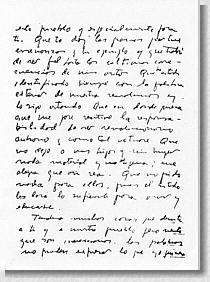 este pueblo y especialmente para
ti. Que te doy las gracias por tus
enseñanzas y tu ejemplo y que trataré
de ser fiel hasta las últimas conse-
cuencias de mis actos. Que he estado
identificado siempre con la política
exterior de nuestra revolución y
lo sigo estando. Que en donde quiera
que me pare sentiré la responsa-
bilidad de ser revolucionario
cubano y como tal actuaré. Que
no dejo a mis hijos y mi mujer
nada material y no me apena; me
alegra que así sea. Que no pido
nada para ellos, pues el estado
les dará lo suficiente para vivir y
educarse.
Tendría muchas cosas que decirte
a ti y a nuestro pueblo pero
que son innecesarias, las palabras
no pueden expresar lo que yo